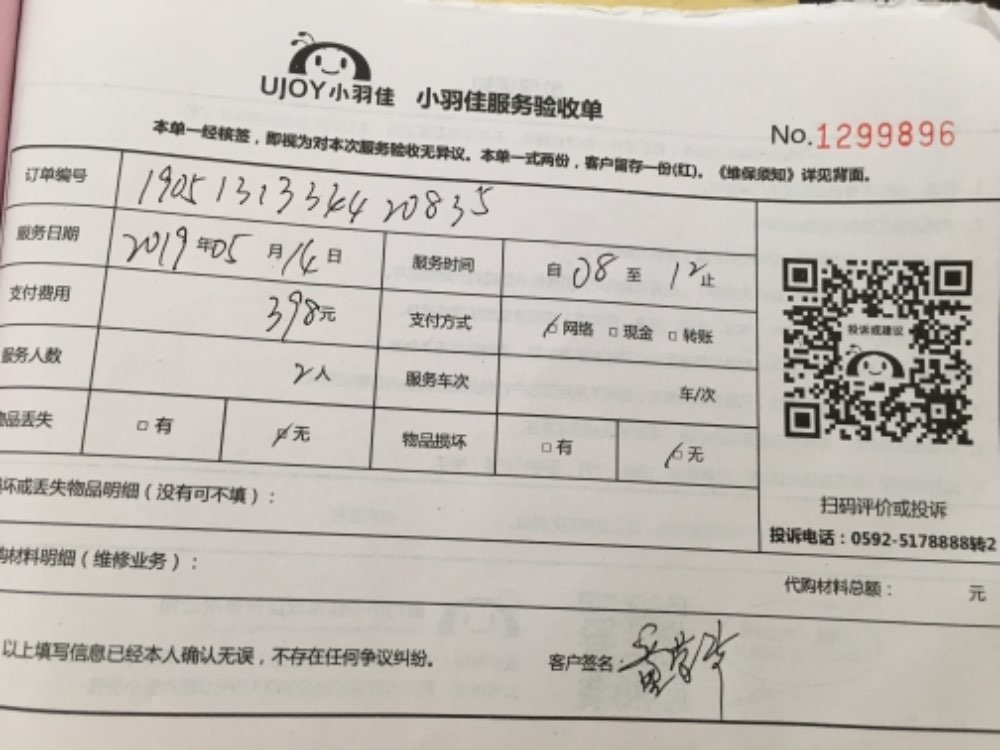 UJOY小羽佳 小羽佳服务验收单
No.1299896
本单一经核签，即视为对本次服务验收无异议。本单一式两份，客户留存一份(红)。《维保须知》详见背面。
订单编号 1905131334420835
服务日期 2019年05月14日 服务时间 自08至12止
支付费用 398元 支付方式 网络 □现金 □转账
服务人数 2人 服务车次 车/次
物品丢失 □有 无 物品损坏 □有 无
投诉或建议
扫码评价或投诉
投诉电话：0592-5178888转2
坏或丢失物品明细（没有可不填）：
购材料明细（维修业务）：
代购材料总额： 元
以上填写信息已经本人确认无误，不存在任何争议纠纷。 客户签名：